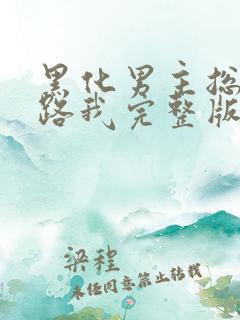 黑化男主总
路我完整版
梁程
未经同意禁止转载